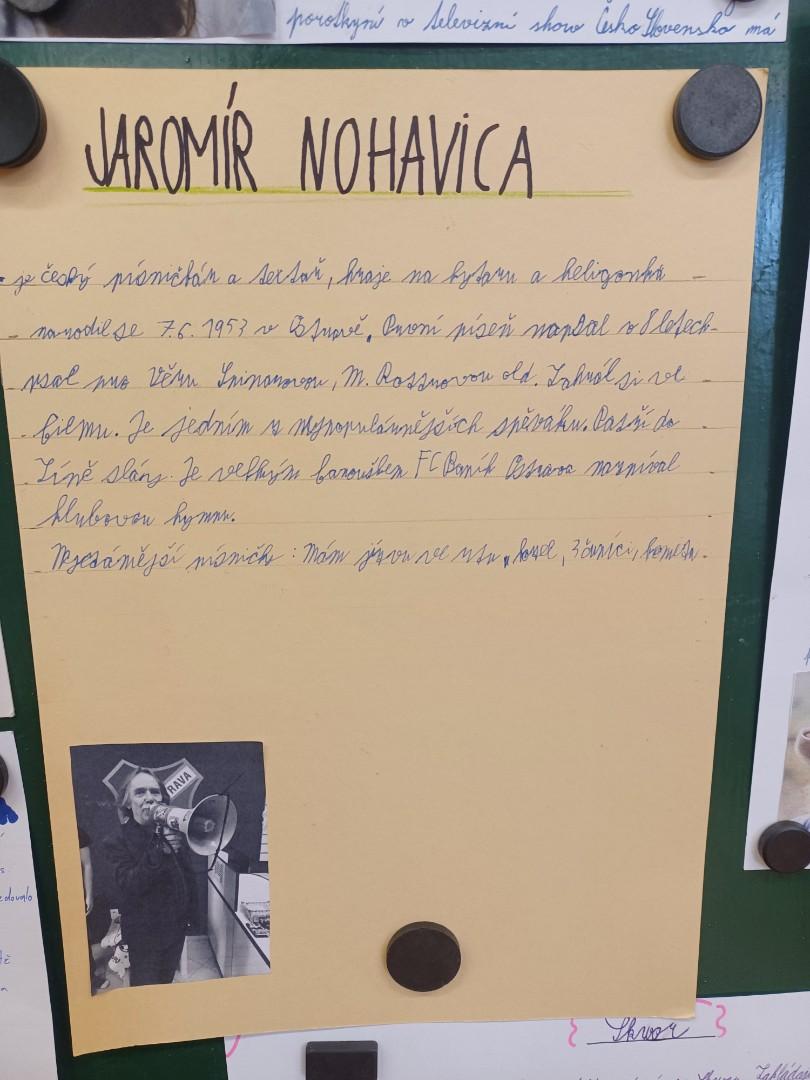 porotkyní v televizní show ČeskoSlovensko má
JAROMÍR NOHAVICA
- je český písničkář a textař, hraje na kytaru a heligonku
narodil se 7.6. 1953 v Ostravě. První píseň napsal v 8 letech.
psal pro Věru Špinarovou, M. Rottrovou atd. Zahrál si ve
filmu. Je jedním z nejpopulárnějších zpěváku. Patří do
Síně slávy. Je velkým fanouškem FC Baník Ostrava nazpíval
klubovou hymnu.
Nejznámější písničky : Mám jizvu ve rtu, kozel, 3 čuníci, kometa.
RAVA
zdovalo
Skvor